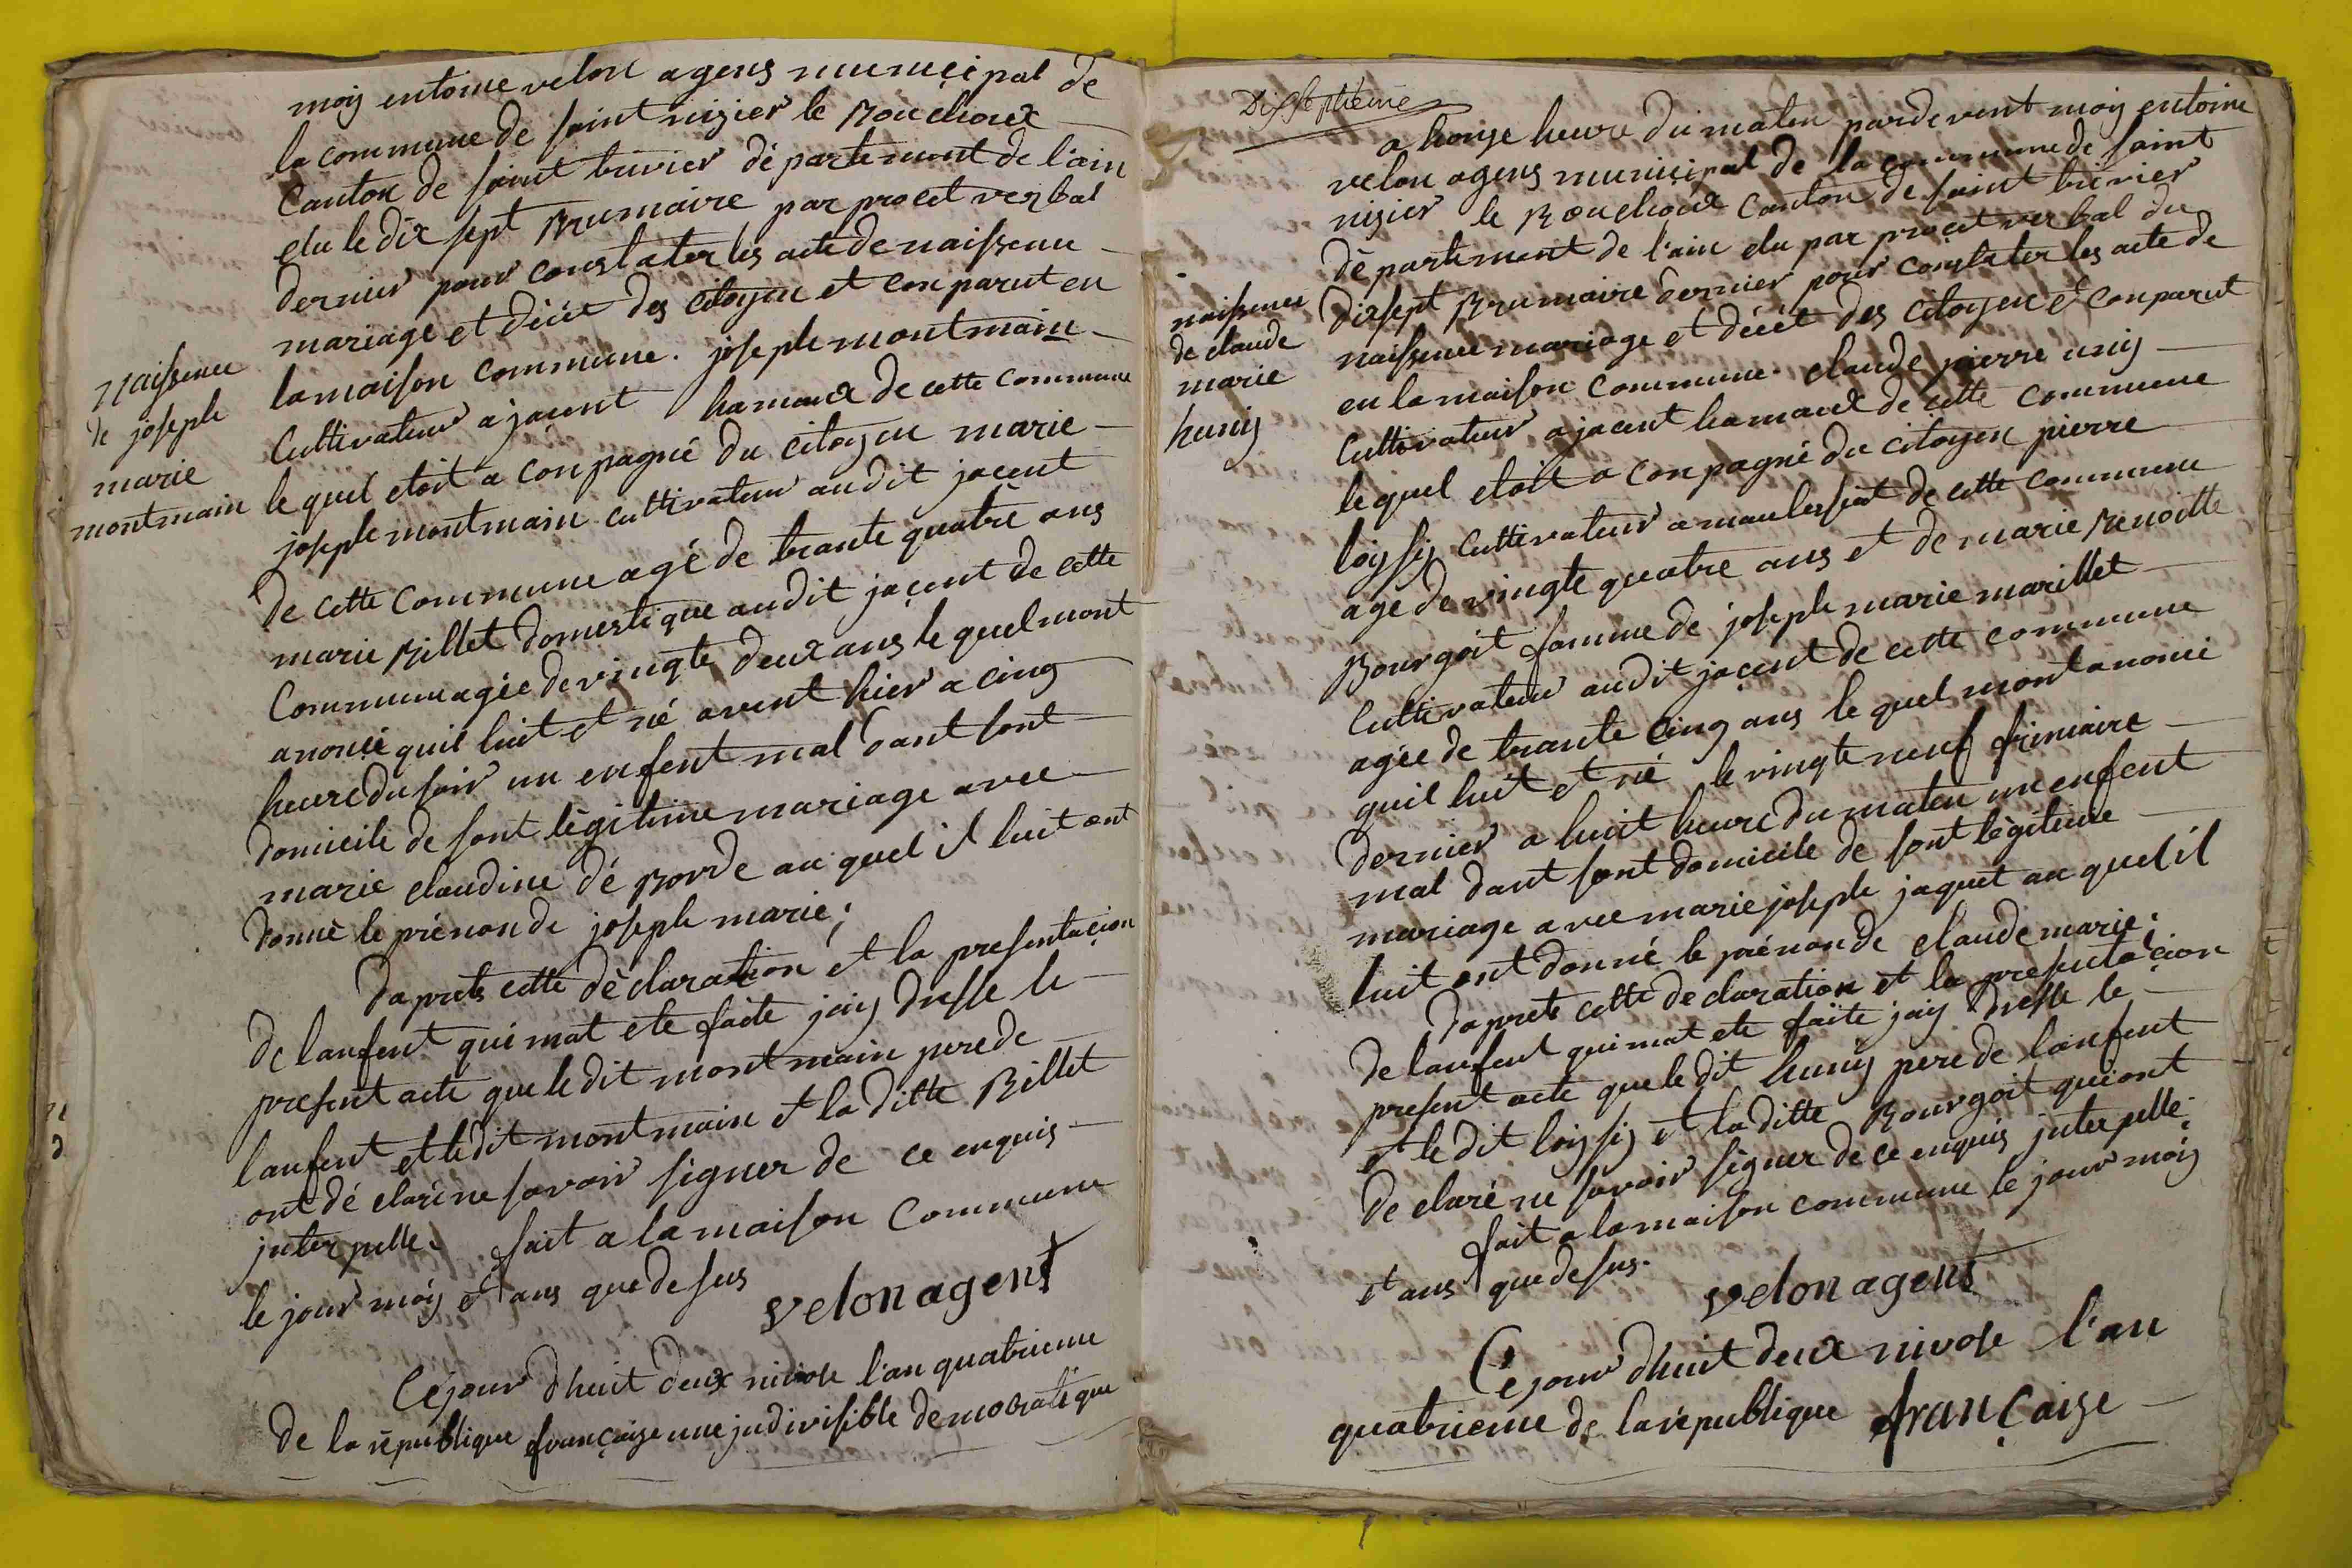 moy entoine velon agens municipal de
la commune de saint nizier le Bouchoux
Canton de saint trivier département de l'ain
elu le dix sept Brumaire par procet verbal
dernier pour constater les acte de naissence
mariage et décét des citoyen et conparut en
la maison commune. joseph montmain
Naissence
de joseph
marie
montmain
Cultivateur a jacent hamaux de cette commune
le quel etoit a conpagné du citoyen marie
joseph montmain cultivateur audit jacent
de cette commune agé de trante quatre ans
marie Billet domestique audit jacent de cette
Commune agée de vingte deux ans le quel mont
anoncé quil luit et né avent hier a cinq
heure du soir un enfent mal dant sont
domicile de sont légitime mariage avec
marie claudine dé Borde au quel il luit ont
donné le prénon de joseph marie;
daprets cette déclaration et la presentacion
de lanfent qui mat ete faite jaiy dresse le
present acte que le dit montmain pere de
lanfent et ledit montmain et la ditte Billet
ont dé claré ne savoir signer de ce enquis
juterpelle. fait a la maison Commune
le jour moy et ans que desus
velon agent
Cejour dhuit deux nivose l'an quatrieme
de la république françaize une judivisible democratique
Dixseptieme
a honze heure du maten pardevent moy entoine
velon agens municipal de la commune de saint
nizier le Bouchoux Canton de saint trivier
département de l'ain elu par procet verbal du
naissence
de claude
marie
huniy
dixsept Brumaire dernier pour constater les acte de
naissence mariage et décét des citoyen et conparut
en la maison commune claude pierre uniy
Cultivateur a jacent hamaux de cette commune
le quel etoit a conpagné du citoyen pierre
loyssiy Cultivateur a maulessiat de cette commune
age de vingte quatre ans et de marie Benoitte
Bourgoit famme de joseph marie marillet
Cultivateur audit jacent de cette commune
agée de trante cinq ans le quel mont anoncé
quil luit et né le vingte neuf frimaire
dernier a huit heure du maten un enfent
mal dant sont domicile de sont légitime
mariage avec marie joseph jaquet au quel il
luit ont donné le prénon de claude marie;
daprets cette declaration et la presentacion
de lanfent qui mat ete faite jaiy dresse le
present acte que le dit huniy pere de lanfent
et le dit loyssiy et la ditte Bourgoit qui ont
de claré ne savoir signer de ce enquis juterpelle.
fait a la maison commune le jour moy
et ans que desus.
velon agent
Cejour dhuit deux nivose l'an
quatrieme de la république françaize